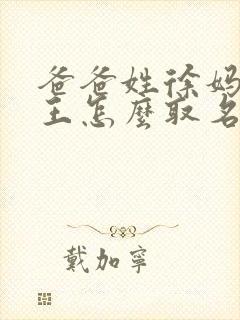 爸爸姓徐妈
王怎麼取名
戴加寧